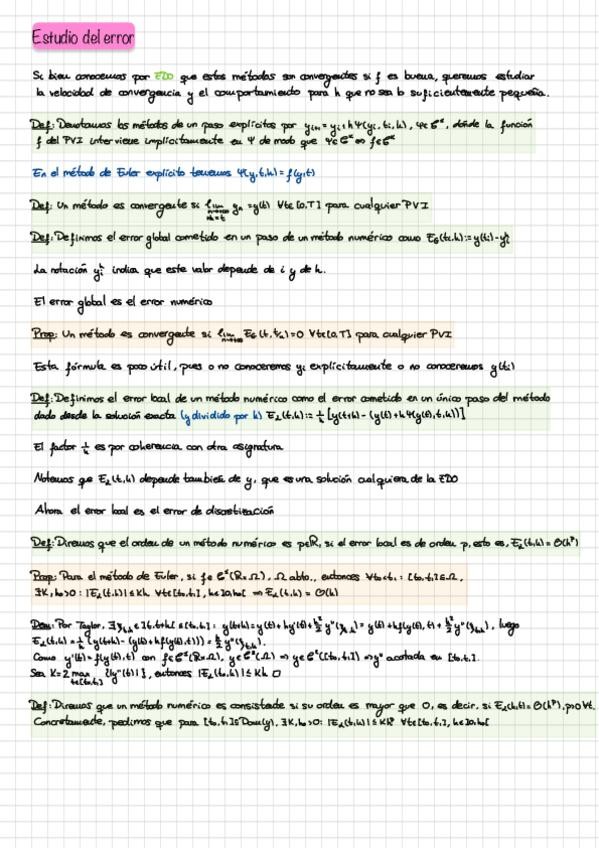 Estudio del error
Si bien conocemos por EDO que estos métodos son convergentes si f es buena, queremos estudiar
la velocidad de convergencia y el comportamiento para h que no sea lo suficientemente pequeña.
Def: Denotamos los métodos de un paso explícitos por yᵢ₊₁ = yᵢ + hΨ(yᵢ, tᵢ, h), donde la función
f del PVI interviene implícitamente en Ψ de modo que
En el método de Euler explícito tenemos Ψ(y,t,h) = f(y,t)
Def: Un método es convergente si lim yₙ = y(t) ∀t∈[0,T] para cualquier PVI
Def: Definimos el error global cometido en un paso de un método numérico como
La notación indica que este valor depende de i y de h.
El error global es el error numérico
Prop: Un método es convergente si lim = 0 ∀t∈[0,T] para cualquier PVI
Esta fórmula es poco útil, pues o no conoceremos yᵢ explícitamente o no conoceremos y(tᵢ)
Def: Definimos el error local de un método numérico como el error cometido en un único paso del método
dado desde la solución exacta (y dividido por h) E_L(t,h) := 1/h [y(t+h) - (y(t) + hΨ(y(t),t,h))]
El factor 1/h es por coherencia con otra asignatura
Notemos que E_L(t,h) depende también de y, que es una solución cualquiera de la EDO
Ahora el error local es el error de discretización
Def: Diremos que el orden de un método numérico es p∈ℝ, si el error local es de orden p, esto es, E_L(t,h) = O(hᵖ)
Prop: Para el método de Euler, si f∈ Ω abto., entonces
∃K, h₀>0: |E_L(t,h)| ≤ Kh, ∀t∈[t₀,t₁], h∈]0,h₀[ ⇒ E_L(t,h) = O(h)
Dem: Por Taylor, luego
E_L(t,h) = 1/h (y(t+h) - (y(t) + hf(y(t),t)))
Como y'(t) = f(y(t),t) con ⇒ y'' acotada en [t₀,t₁].
Sea K = 2 max {|y''(t)|}, entonces |E_L(t,h)| ≤ Kh □
Def: Diremos que un método numérico es consistente si su orden es mayor que 0, es decir, si E_L(h,t) = O(hᵖ), p>0 ∀t.
Concretamente, pedimos que para [t₀,t₁]⊆Dom(y), ∃K, h₀>0: |E_L(t,h)| ≤ Khᵖ ∀t∈[t₀,t₁], h∈]0,h₀[